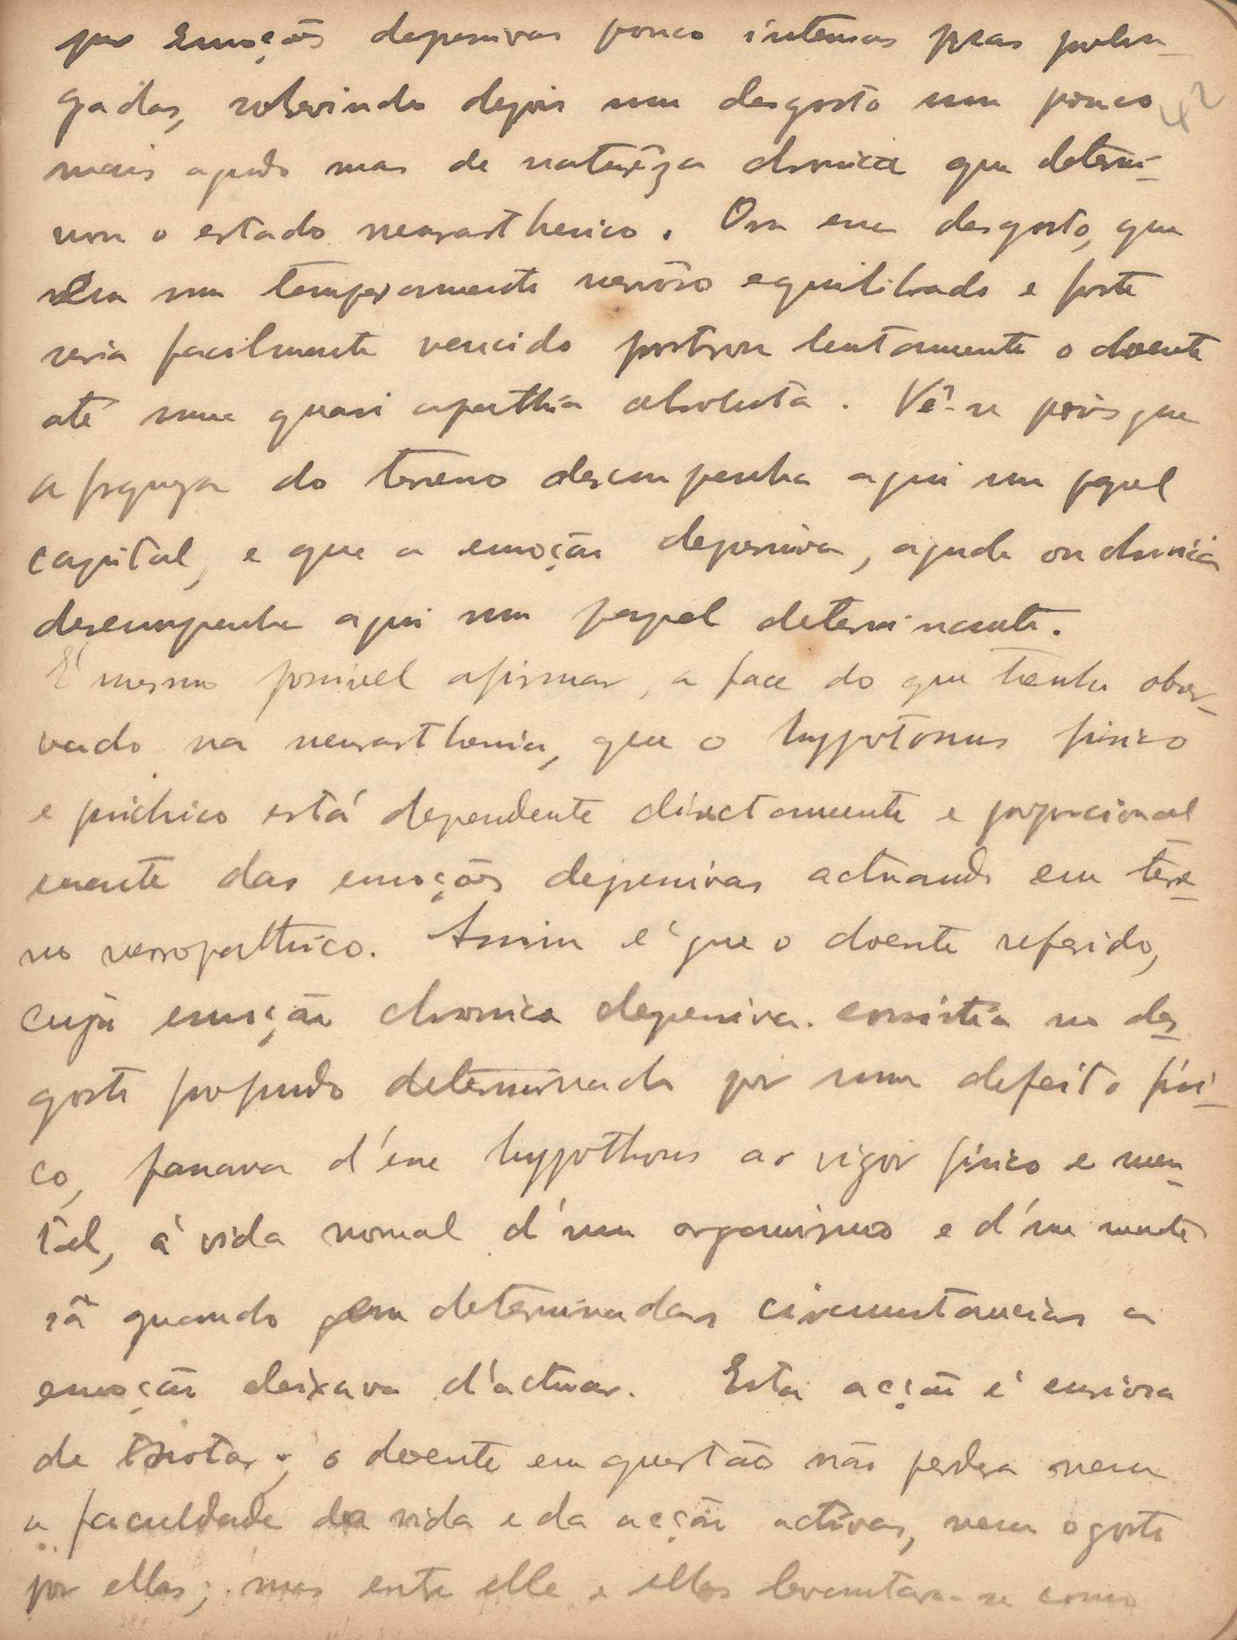 por emoções depressivas pouco intensas mas prolon-
gadas, sobrevindo depois um desgosto um pouco
42
mais agudo mas de naturêza chronica que determi-
nou o estado neurasthenico. Ora esse desgosto, que
n'um temperamento nervôso equilibrado e forte
seria facilmente vencido prostrou lentamente o doente
até uma quasi apathia absoluta. Vê-se pois que
a fraqueza do terreno desempenha aqui um papel
capital, e que a emoção depressiva, aguda ou chronica
desempenha aqui um papel determinante.
É mesmo possivel afirmar, a face do que tenho obser-
vado na neurasthenia, que o hypotonus fisico
e psichico está dependente directamente e proporcional
mente das emoções depressivas actuando em terre-
no nevropathico. Assim é que o doente referido,
cuja emoção chronica depressiva consistia no des-
gosto profundo determinado por um defeito fisi-
co, passava d'esse hypotonus ao vigor fisico e men-
tal, á vida normal d'um organismo e d'uma mente
sã quando em determinadas circumstancias a
emoção deixava d'actuar. Esta acção é curiosa
de notar; o doente em questão não perdera nem
a faculdade da vida e da acção activas, nem o gosto
por ellas; mas entre elle e ellas levantava-se como